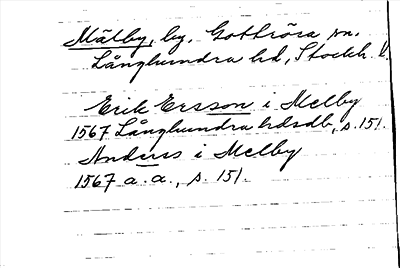 Mälby, by. Gottröra sn.
Långhundra hd, Stockh. l.
Erik Ersson i Melby
1567 Långhundra hdsdb, s. 151.
Anders i Melby
1567 a. a., s. 151.